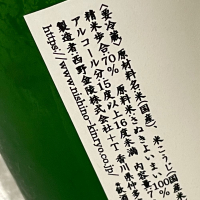 〈要冷蔵〉
原材料名:米(国産)、米こうじ(国産米
原料米:さぬきよいまい100%
精米歩合:70%
アルコール分:15度以上16度未満 内容量:7
製造者:西野金陵株式会社+T 香川県仲多
https://www.nishino-kinryo.co.jp/